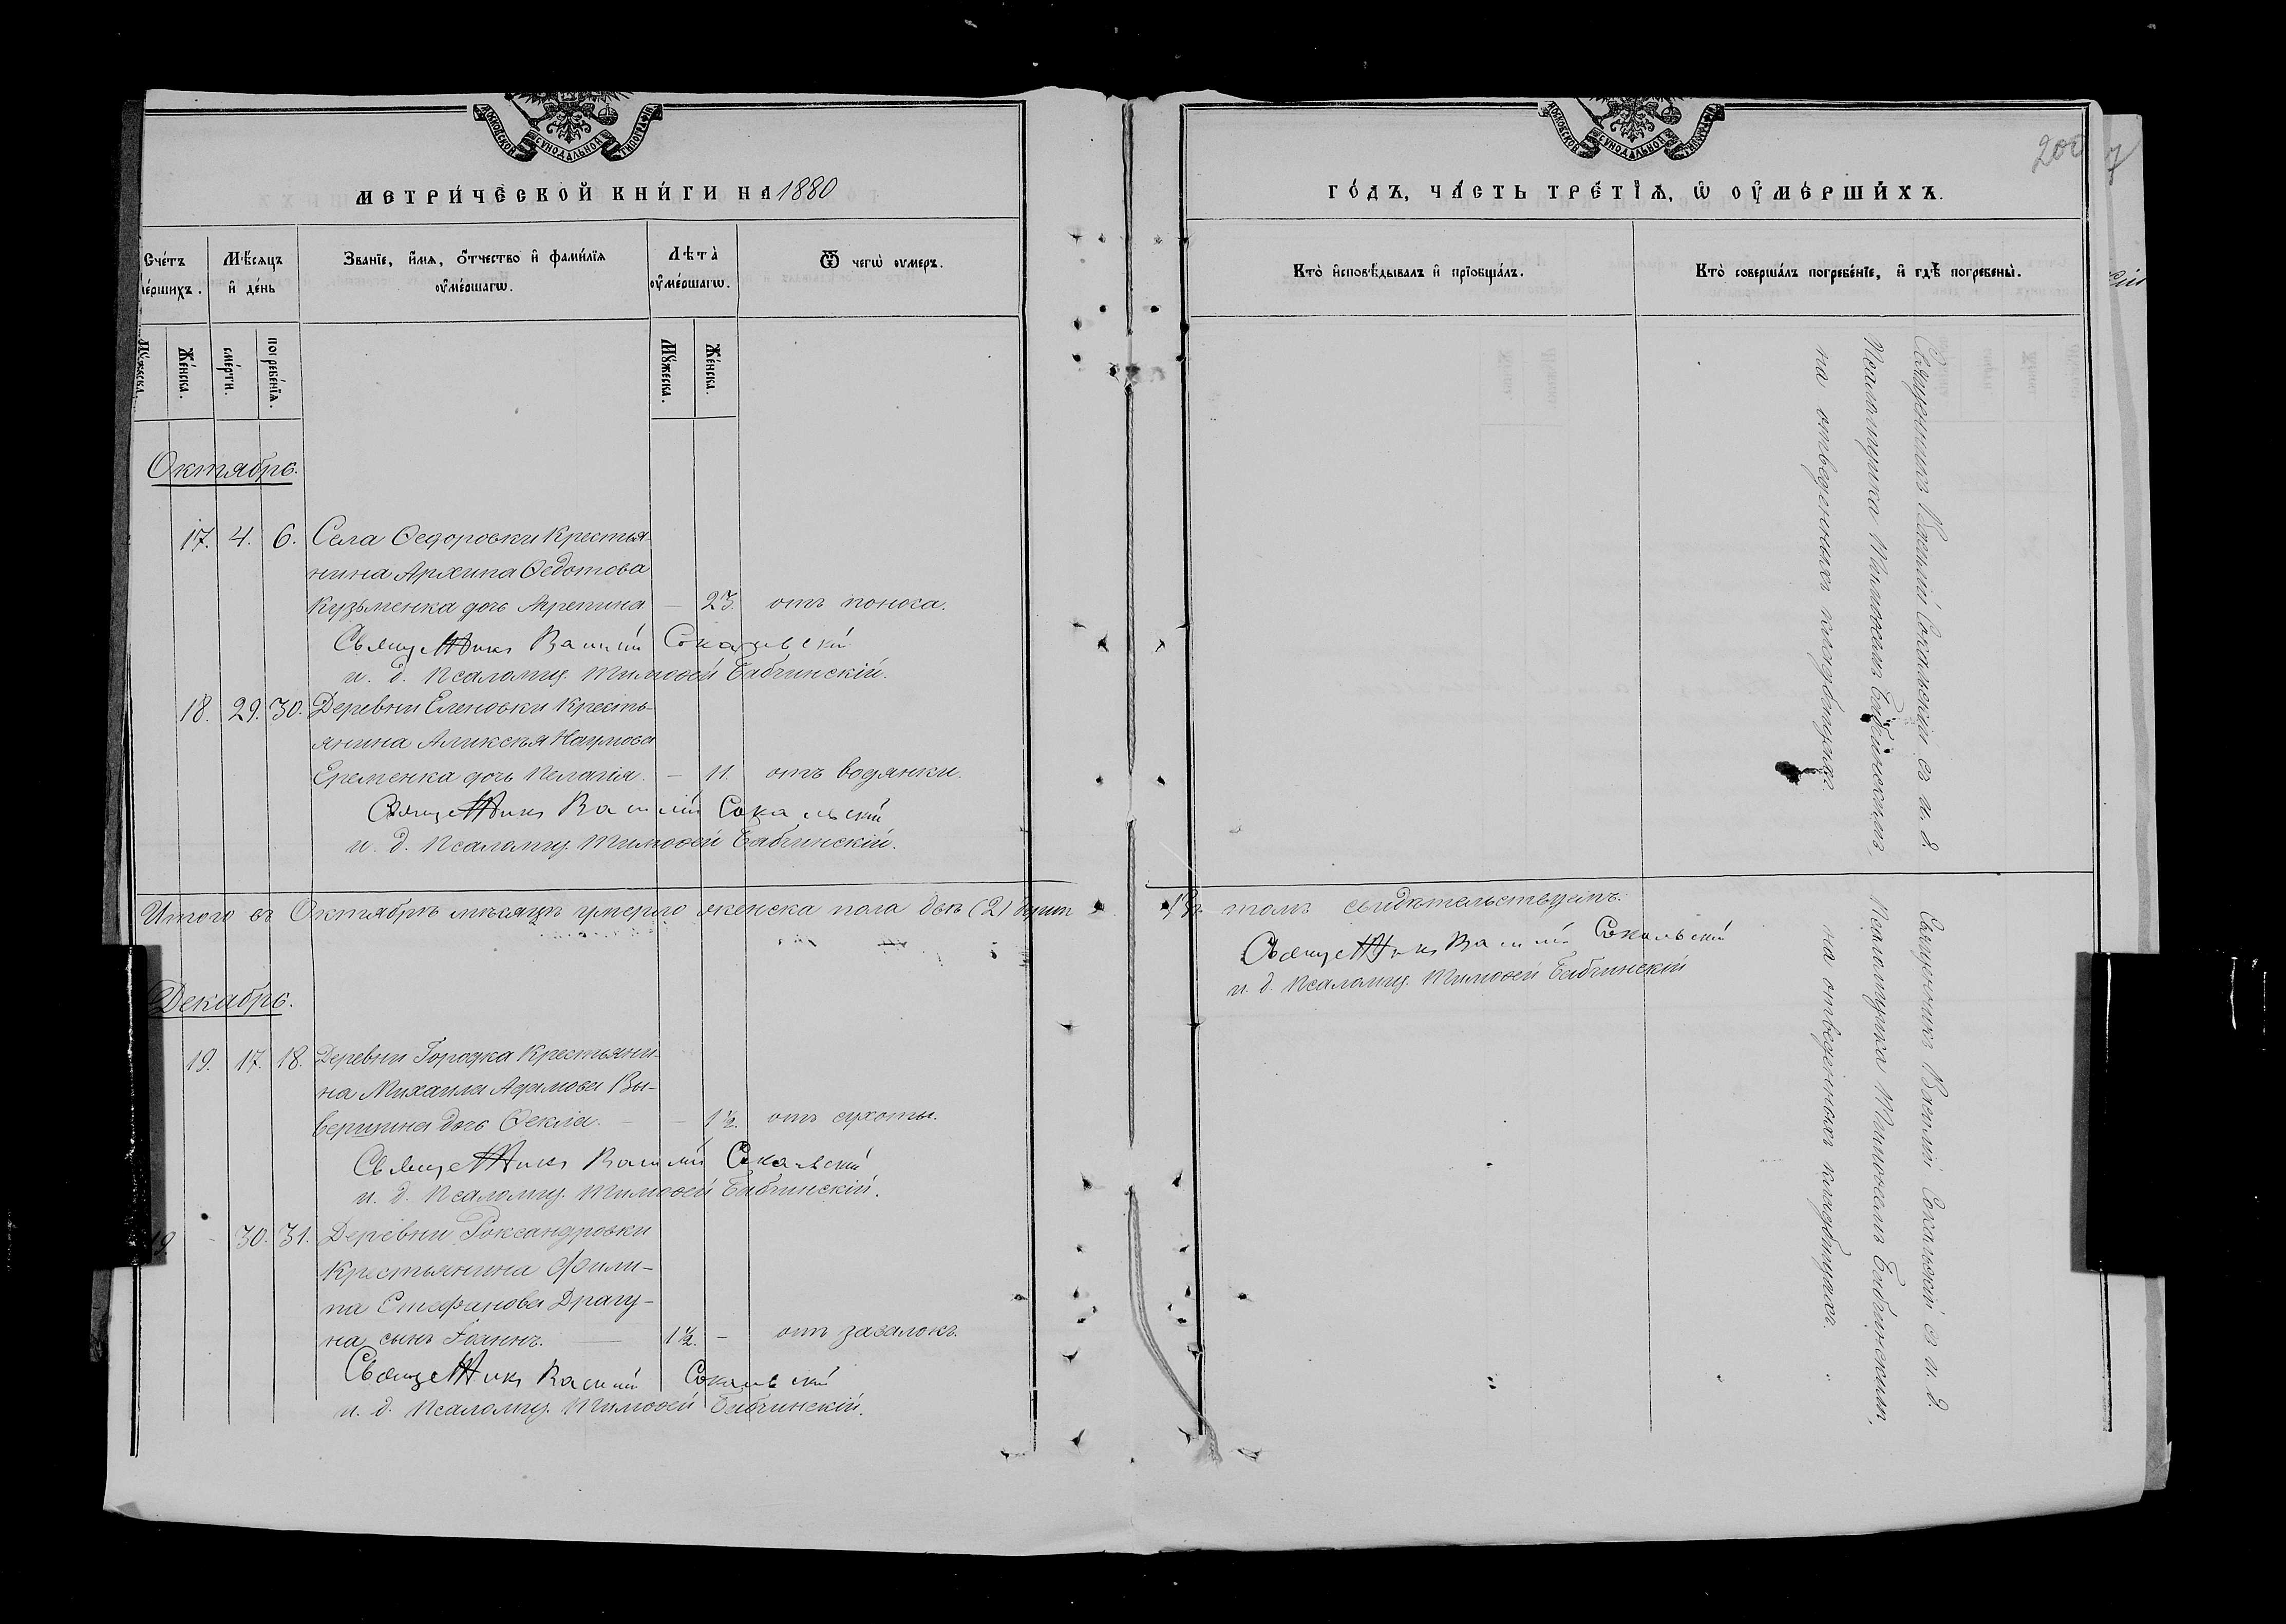 МОСКОВСКОЙ СѴНОДАЛЬНОЙ ТИПОГРАФІИ
МЕТРИ́ЧЕСКОЙ КНИ́ГИ НА 1880
Счéтъ ме́ршихъ.
Мѣ́сяцъ и҆ де́нь
Зва́нїе, и҆́мѧ, ѻ҆́тчество и҆ фами́лїѧ ᲂу҆ме́ршагѡ.
Лѣ́та ᲂу҆ме́ршагѡ.
Ѿ чегѡ̀ ᲂумеръ.
Мꙋ́жеска.
Же́нска.
сме́рти.
погребе́нїѧ.
Мꙋ́жеска.
Же́нска.
Октябрь.
17. 4. 6. Села Ѳедоровки крестья-
нина Архипа Ѳедотова
Кузьменка дочь Агрепина — 23. отъ поноса.
Священникъ Василій Сокальскій
и. д. Псаломщ. Тимоѳей Бабчинскій.
18. 29. 30. Деревни Еленовки кресть-
янина Алексѣя Наумова
Еременка дочь Пелагія. — 11. отъ водянки.
Священникъ Василій Сокальскій
и. д. Псаломщ. Тимоѳей Бабчинскій.
Итого въ Октябрѣ мѣсяцѣ умерло женска пола двѣ (2) души
Декабрь.
19. 17. 18. Деревни Городка крестьяни-
на Михаила Адамова Вы-
вершина дочь Ѳекла. — 1½. отъ сухоты.
Священникъ Василій Сокальскій
и. д. Псаломщ. Тимоѳей Бабчинскій.
19. - 30. 31. Деревни Роксандровки
крестьянина Фили-
па Стефанова Драгу-
на сынъ Іоаннъ. — 1½. - отъ завалокъ.
Священникъ Василій Сокальскій
и. д. Псаломщ. Тимоѳей Бабчинскій.
МОСКОВСКОЙ СѴНОДАЛЬНОЙ ТИПОГРАФІИ
ГО́ДЪ, ЧА́СТЬ ТРЕ́ТЇѦ, Ѡ҆ ОУ҆МЕ́РШИХЪ.
Кто̀ и҆сповѣ́дывалъ и҆ прїѡбща́лъ.
Кто̀ соверша́лъ погребе́нїе, и҆ гдѣ̀ погребены̀.
Священникъ Василій Сокальскій съ и. д.
Псаломщика Тимоѳеемъ Бабчинскимъ,
на отведенныхъ кладбищахъ.
томъ свидѣтельствуемъ.
Священникъ Василій Сокальскій
и. д. Псаломщ. Тимоѳей Бабчинскій
Священникъ Василій Сокальскій съ и. д.
Псаломщика Тимоѳеемъ Бабчинскимъ,
на отведенныхъ кладбищахъ.